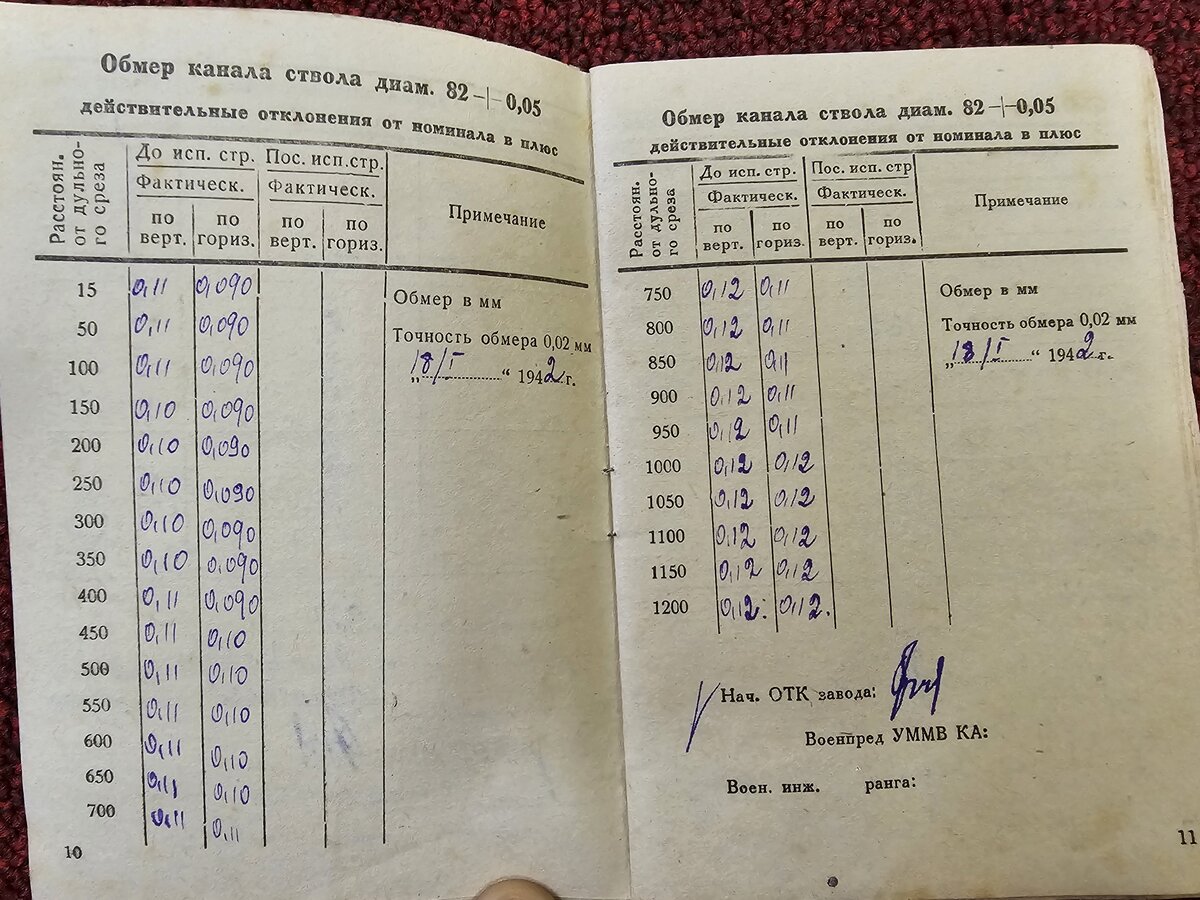 Обмер канала ствола диам. 82 + 0,05
действительные отклонения от номинала в плюс
Расстоян. от дульно-го среза
До исп. стр. Пос. исп.стр.
Фактическ. Фактическ.
Примечание
по верт. по гориз. по верт. по гориз.
15 0,11 0,090
Обмер в мм
50 0,11 0,090
Точность обмера 0,02 мм
100 0,11 0,090
„18/I“ 1942 г.
150 0,10 0,090
200 0,10 0,090
250 0,10 0,090
300 0,10 0,090
350 0,10 0,090
400 0,11 0,090
450 0,11 0,10
500 0,11 0,10
550 0,11 0,10
600 0,11 0,10
650 0,11 0,10
700 0,11 0,11
10
Обмер канала ствола диам. 82 + 0,05
действительные отклонения от номинала в плюс
Расстоян. от дульно-го среза
До исп. стр. Пос. исп. стр
Фактическ. Фактическ.
Примечание
по верт. по гориз. по верт. по гориз.
750 0,12 0,11
Обмер в мм
800 0,12 0,11
Точность обмера 0,02 мм
850 0,12 0,11
„18/I“ 1942 г.
900 0,12 0,11
950 0,12 0,11
1000 0,12 0,12
1050 0,12 0,12
1100 0,12 0,12
1150 0,12 0,12
1200 0,12. 0,12.
Нач. ОТК завода:
Военпред УММВ КА:
Воен. инж. ранга:
11